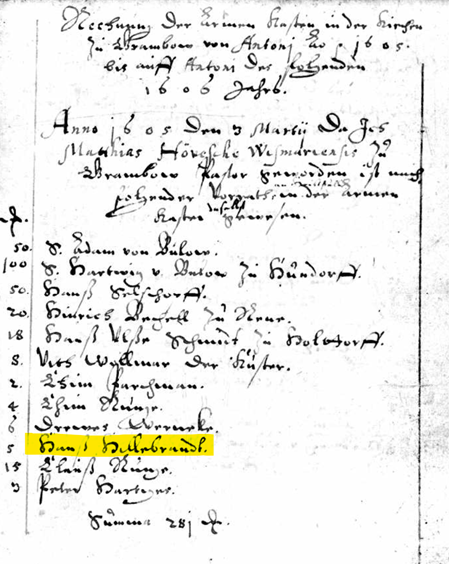 Rechnung der Armen Kasten in der Kirchen
zu Grambow von Antonj Ao 1605.
bis auff Antoni des folgenden
1606 Jahrs.
Anno 1605 den 3 Martij Da Ich
Matthias Wismariensis zu
Grambow Pastor geworden ist nach
folgender in der armen
Kasten gewesen.
50. H. Adam von Bülow.
100 H. Hartwig v. Bulow zu Hundorff.
50. Hanß
20. Hinrich zu
18 Hanß Schmidt zu
8. Vits Wollmar der Küster.
2. Chim Parchman.
4 Chim Runge.
6 Drewes Werneke.
5 Hanß Hillebrandt.
15 Clauß Runge.
3 Peter Hartiges.
Summa 281